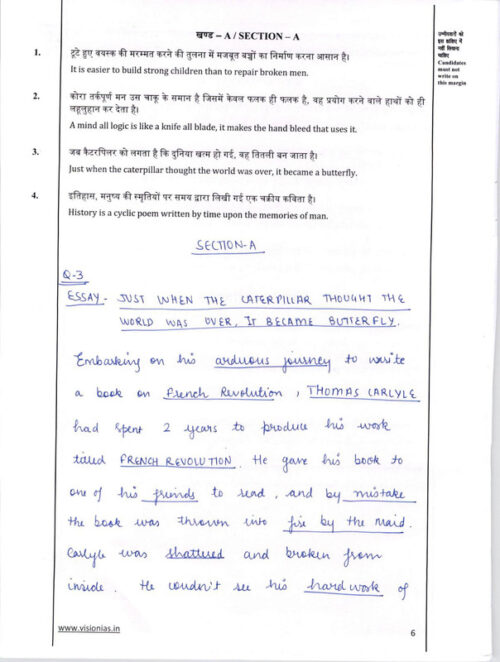 खण्ड – A / SECTION – A
उम्मीदवारों को
इस हाशिए में
नहीं लिखना
चाहिए
Candidates
must not
write on
this margin
1. टूटे हुए वयस्क की मरम्मत करने की तुलना में मजबूत बच्चों का निर्माण करना आसान है।
It is easier to build strong children than to repair broken men.
2. कोरा तर्कपूर्ण मन उस चाकू के समान है जिसमें केवल फलक ही फलक है, वह प्रयोग करने वाले हाथों को ही
लहूलुहान कर देता है।
A mind all logic is like a knife all blade, it makes the hand bleed that uses it.
3. जब कैटरपिलर को लगता है कि दुनिया खत्म हो गई, वह तितली बन जाता है।
Just when the caterpillar thought the world was over, it became a butterfly.
4. इतिहास, मनुष्य की स्मृतियों पर समय द्वारा लिखी गई एक चक्रीय कविता है।
History is a cyclic poem written by time upon the memories of man.
SECTION-A
Q-3
ESSAY- JUST WHEN THE CATERPILLAR THOUGHT THE
WORLD WAS OVER, IT BECAME BUTTERFLY.
Embarking on his arduous journey to write
a book on French Revolution, THOMAS CARLYLE
had spent 2 years to produce his work
titled FRENCH REVOLUTION. He gave his book to
one of his friends to read, and by mistake
the book was thrown into fire by the maid.
Carlyle was shattered and broken from
inside. He couldn't see his hard work of
www.visionias.in
6